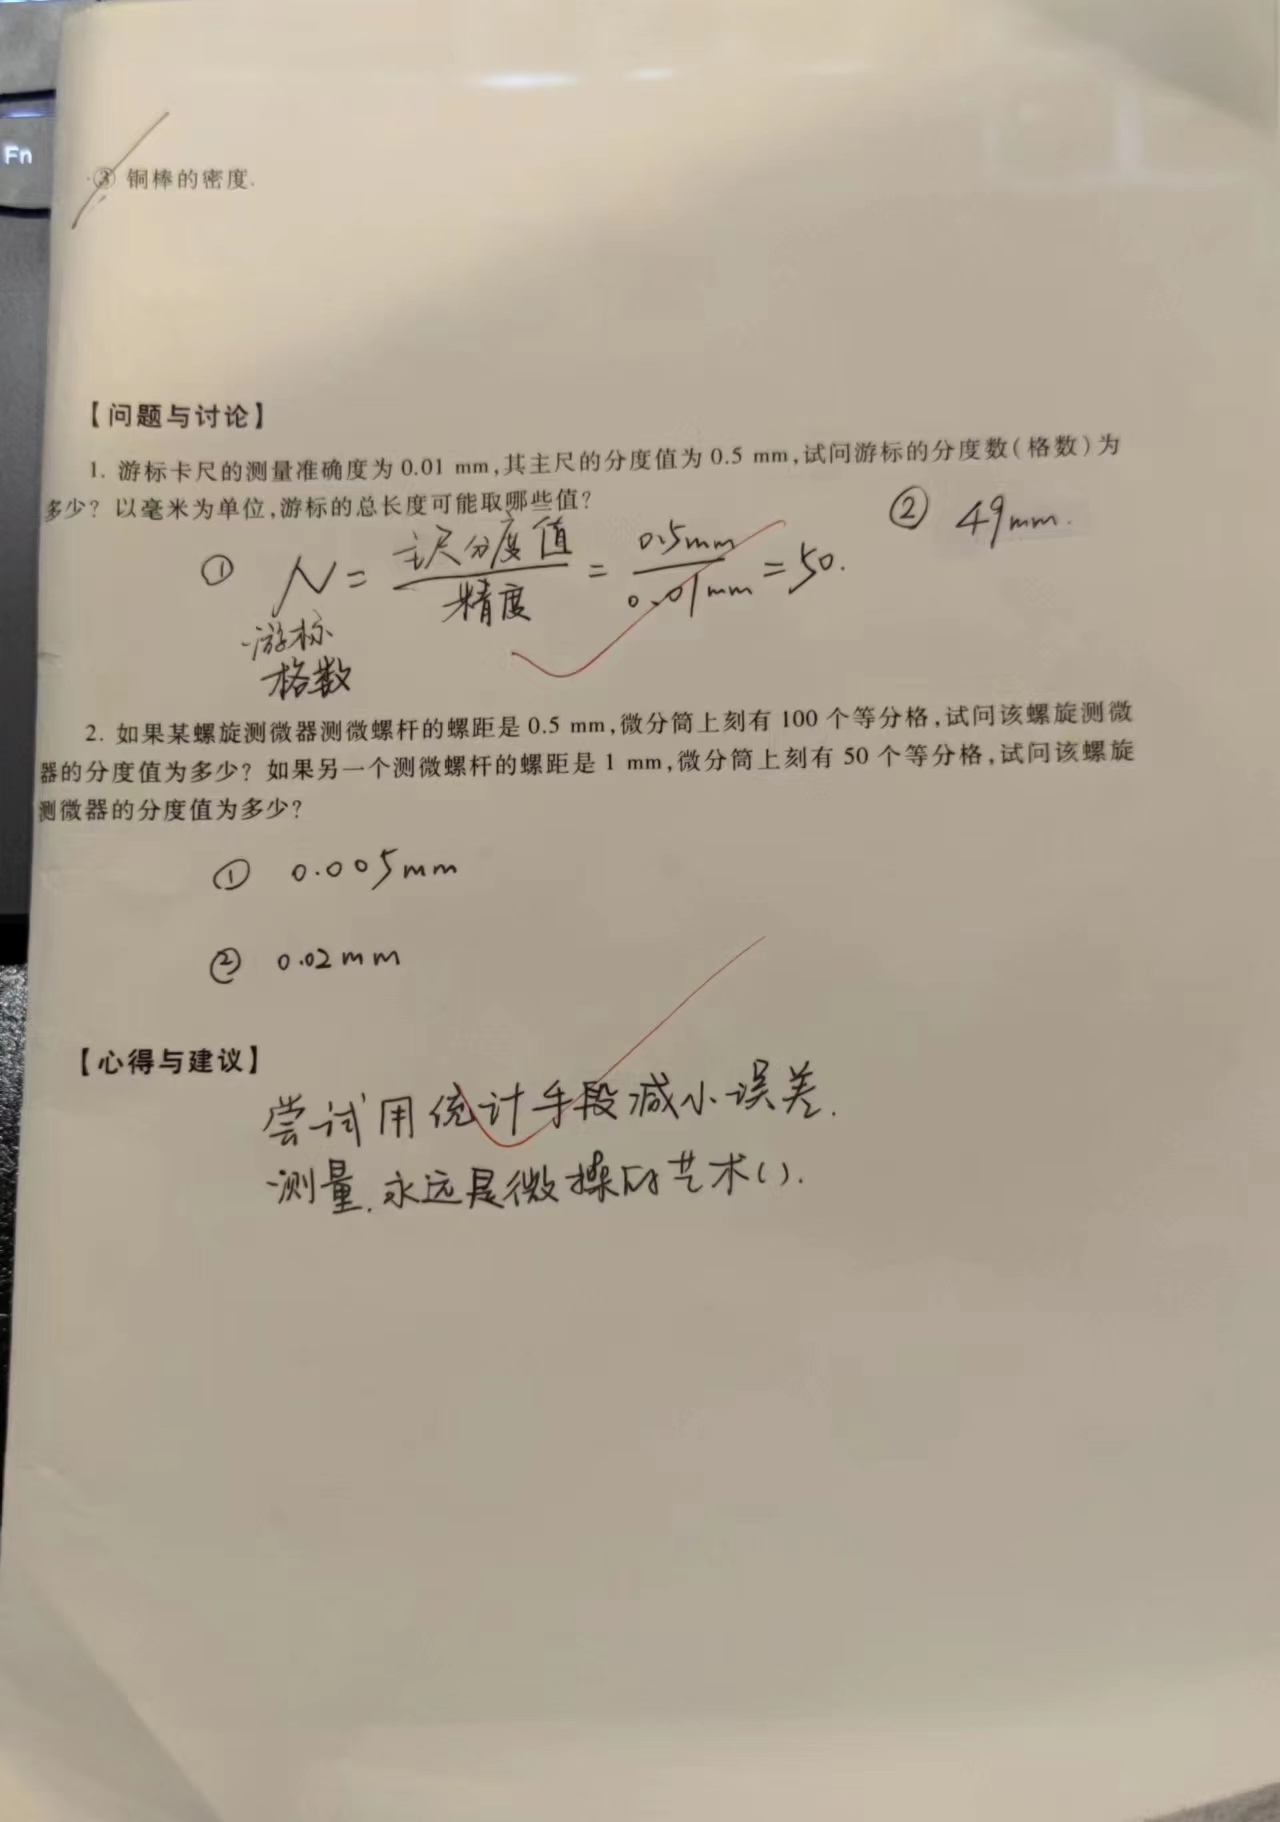 Fn
③ 铜棒的密度.
【问题与讨论】
1. 游标卡尺的测量准确度为 0.01 mm,其主尺的分度值为 0.5 mm,试问游标的分度数(格数)为
多少? 以毫米为单位,游标的总长度可能取哪些值?
② 49mm.
① N = 主尺分度值/精度 = 0.5mm/0.01mm = 50.
游标
格数
2. 如果某螺旋测微器测微螺杆的螺距是 0.5 mm,微分筒上刻有 100 个等分格,试问该螺旋测微
器的分度值为多少? 如果另一个测微螺杆的螺距是 1 mm,微分筒上刻有 50 个等分格,试问该螺旋
测微器的分度值为多少?
① 0.005mm
② 0.02mm
【心得与建议】
尝试用统计手段减小误差.
测量,永远是微操的艺术().